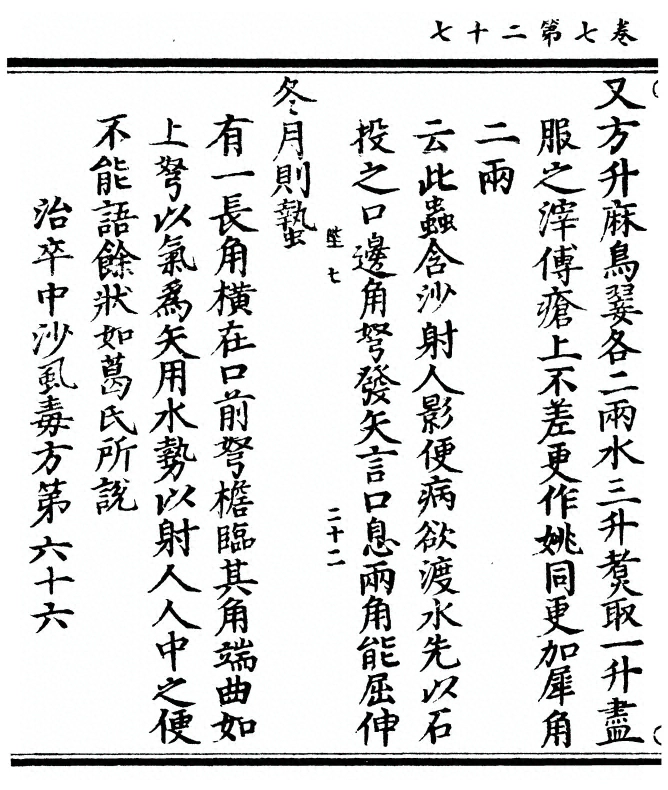 卷七第二十七
又方升麻烏翣各二兩水三升煑取一升盡
服之滓傅瘡上不差更作姚同更加犀角
二兩
云此蟲含沙射人影便病欲渡水先以石
投之口邊角弩發矢言口息兩角能屈伸
陞七
二十二
冬月則蟄
有一長角橫在口前弩檐臨其角端曲如
上弩以氣爲矢用水勢以射人人中之便
不能語餘狀如葛氏所說
治卒中沙虱毒方第六十六